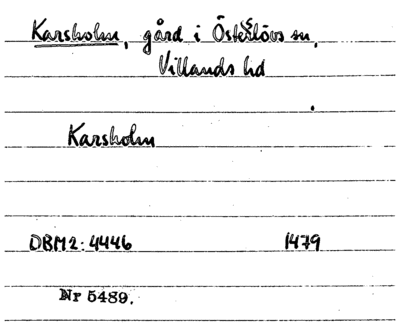 Karsholm, gård i Österlövs sn,
Villands hd
Karsholm
DBM2:4446 1479
Nr 5489.